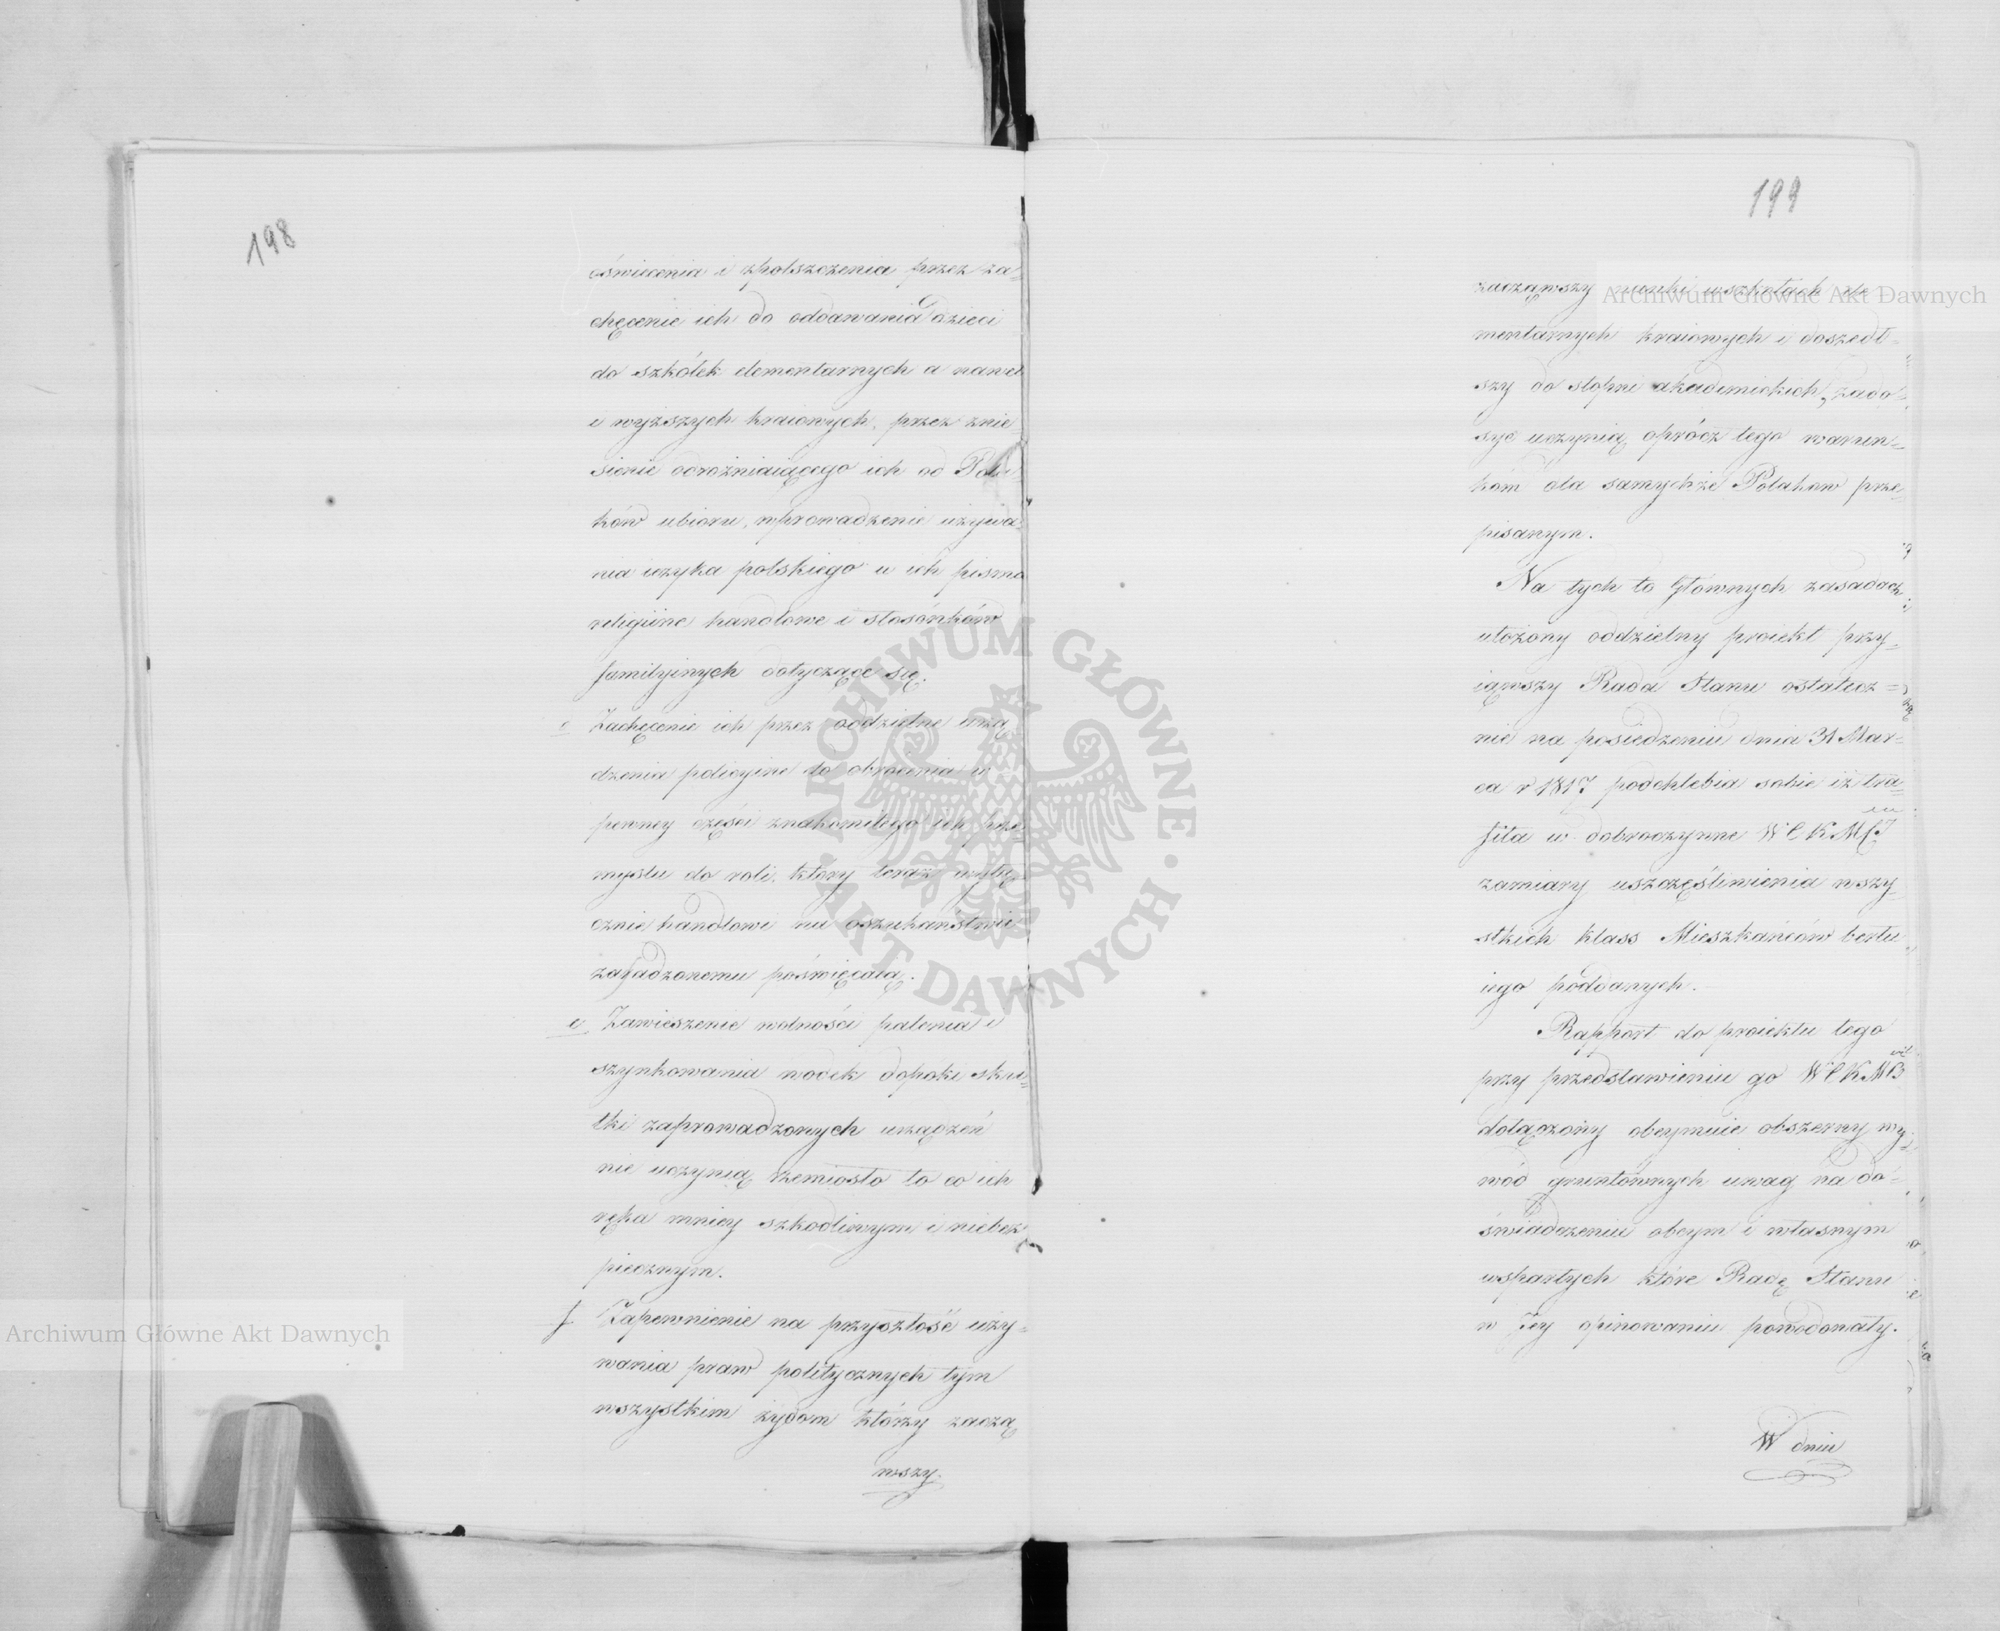 198
oświecenia i spolszczenia przez za=
chęcenie ich do oddawania dzieci
do szkółek elementarnych a nawet
i wyższych kraiowych, przez znie=
sienie odrożniaiącego ich od Pola=
ków ubioru, wprowadzenie używa=
nia ięzyka polskiego w ich pisma
religiine handlowe i stosónków
familyinych dotyczące się.
Zachęcenie ich przez oddzielne urzą
dzenia policyine do obrócenia w
pewney części znakomitego ich prze
mysłu do roli, który teraz wyłą=
cznie handlowi na oszukaństwie
zasadzonemu poświęcaią.
e Zawieszenie wolności palenia i
szynkowania wódek dopóki sku=
tki zaprowadzonych urządzeń
nie uczynią rzemiosło to w ich
ręku mniey szkodliwym i niebez
piecznym.
f Zapewnienie na przyszłość uży=
wania praw politycznych tym
wszystkim żydom którzy zaczą
wszy.
199
zacząwszy nauki w szkołach ele=
mentarnych kraiowych i doszedł=
szy do stopni akademickich, zado=
syć uczynią oprócz tego warun=
kom dla samychże Polaków prze=
pisanym.
Na tych to głownych zasadach
ułożony oddzielny proiekt przy=
iąwszy Rada Stanu ostatecz=
nie na posiedzeniu dnia 31 Mar=
ca r 1817 podchlebia sobie iż tra=
fiła w dobroczynne W C K Mci
zamiary uszczęśliwienia wszy=
stkich klass Mieszkańców berłu
iego poddanych.
Rapport do proiektu tego
przy przedstawieniu go W C K M
dołączony obeymuie obszerny wy=
wód gruntównych uwag na do=
świadczeniu obcym i własnym
wspartych które Radę Stanu
w Jey opinowaniu powodowały.
W dniu
Archiwum Główne Akt Dawnych
Archiwum Główne Akt Dawnych
ARCHIWUM GŁÓWNE • AKT DAWNYCH •